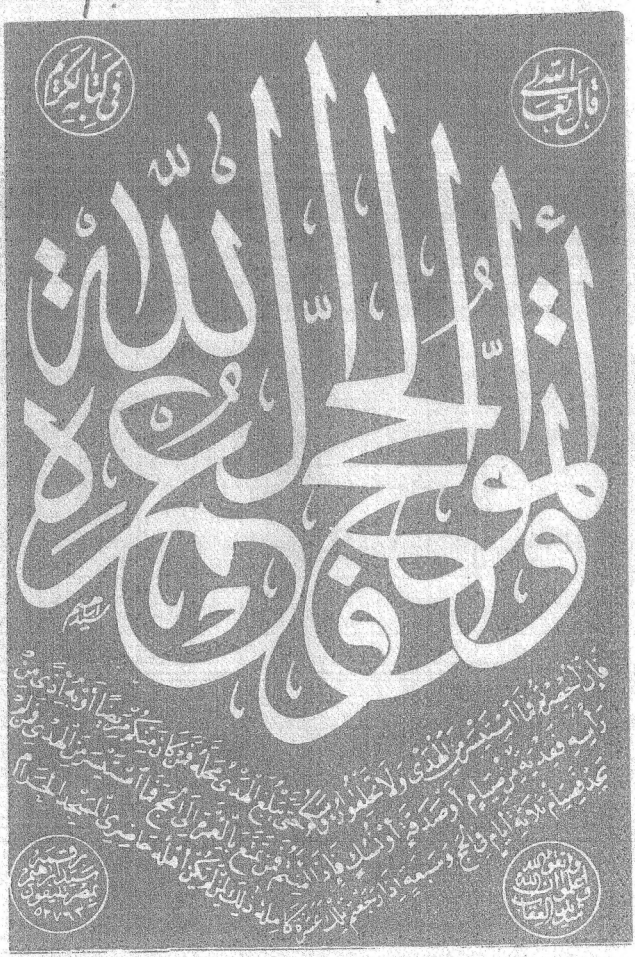 قال الله تعالى
في كتابه الكريم
وأتموا الحج والعمرة لله
سيد إبراهيم
فإن أحصرتم فما استيسر من الهدي ولا تحلقوا رءوسكم حتى يبلغ الهدي محله فمن كان منكم مريضا أو به أذى من
رأسه ففدية من صيام أو صدقة أو نسك فإذا أمنتم فمن تمتع بالعمرة إلى الحج فما استيسر من الهدي فمن لم
يجد فصيام ثلاثة أيام في الحج وسبعة إذا رجعتم تلك عشرة كاملة ذلك لمن لم يكن أهله حاضري المسجد الحرام
واتقوا الله
واعلموا أن الله
شديد العقاب
رقمه
سيد إبراهيم
بمصر تليفون
٥٢٧٩٣